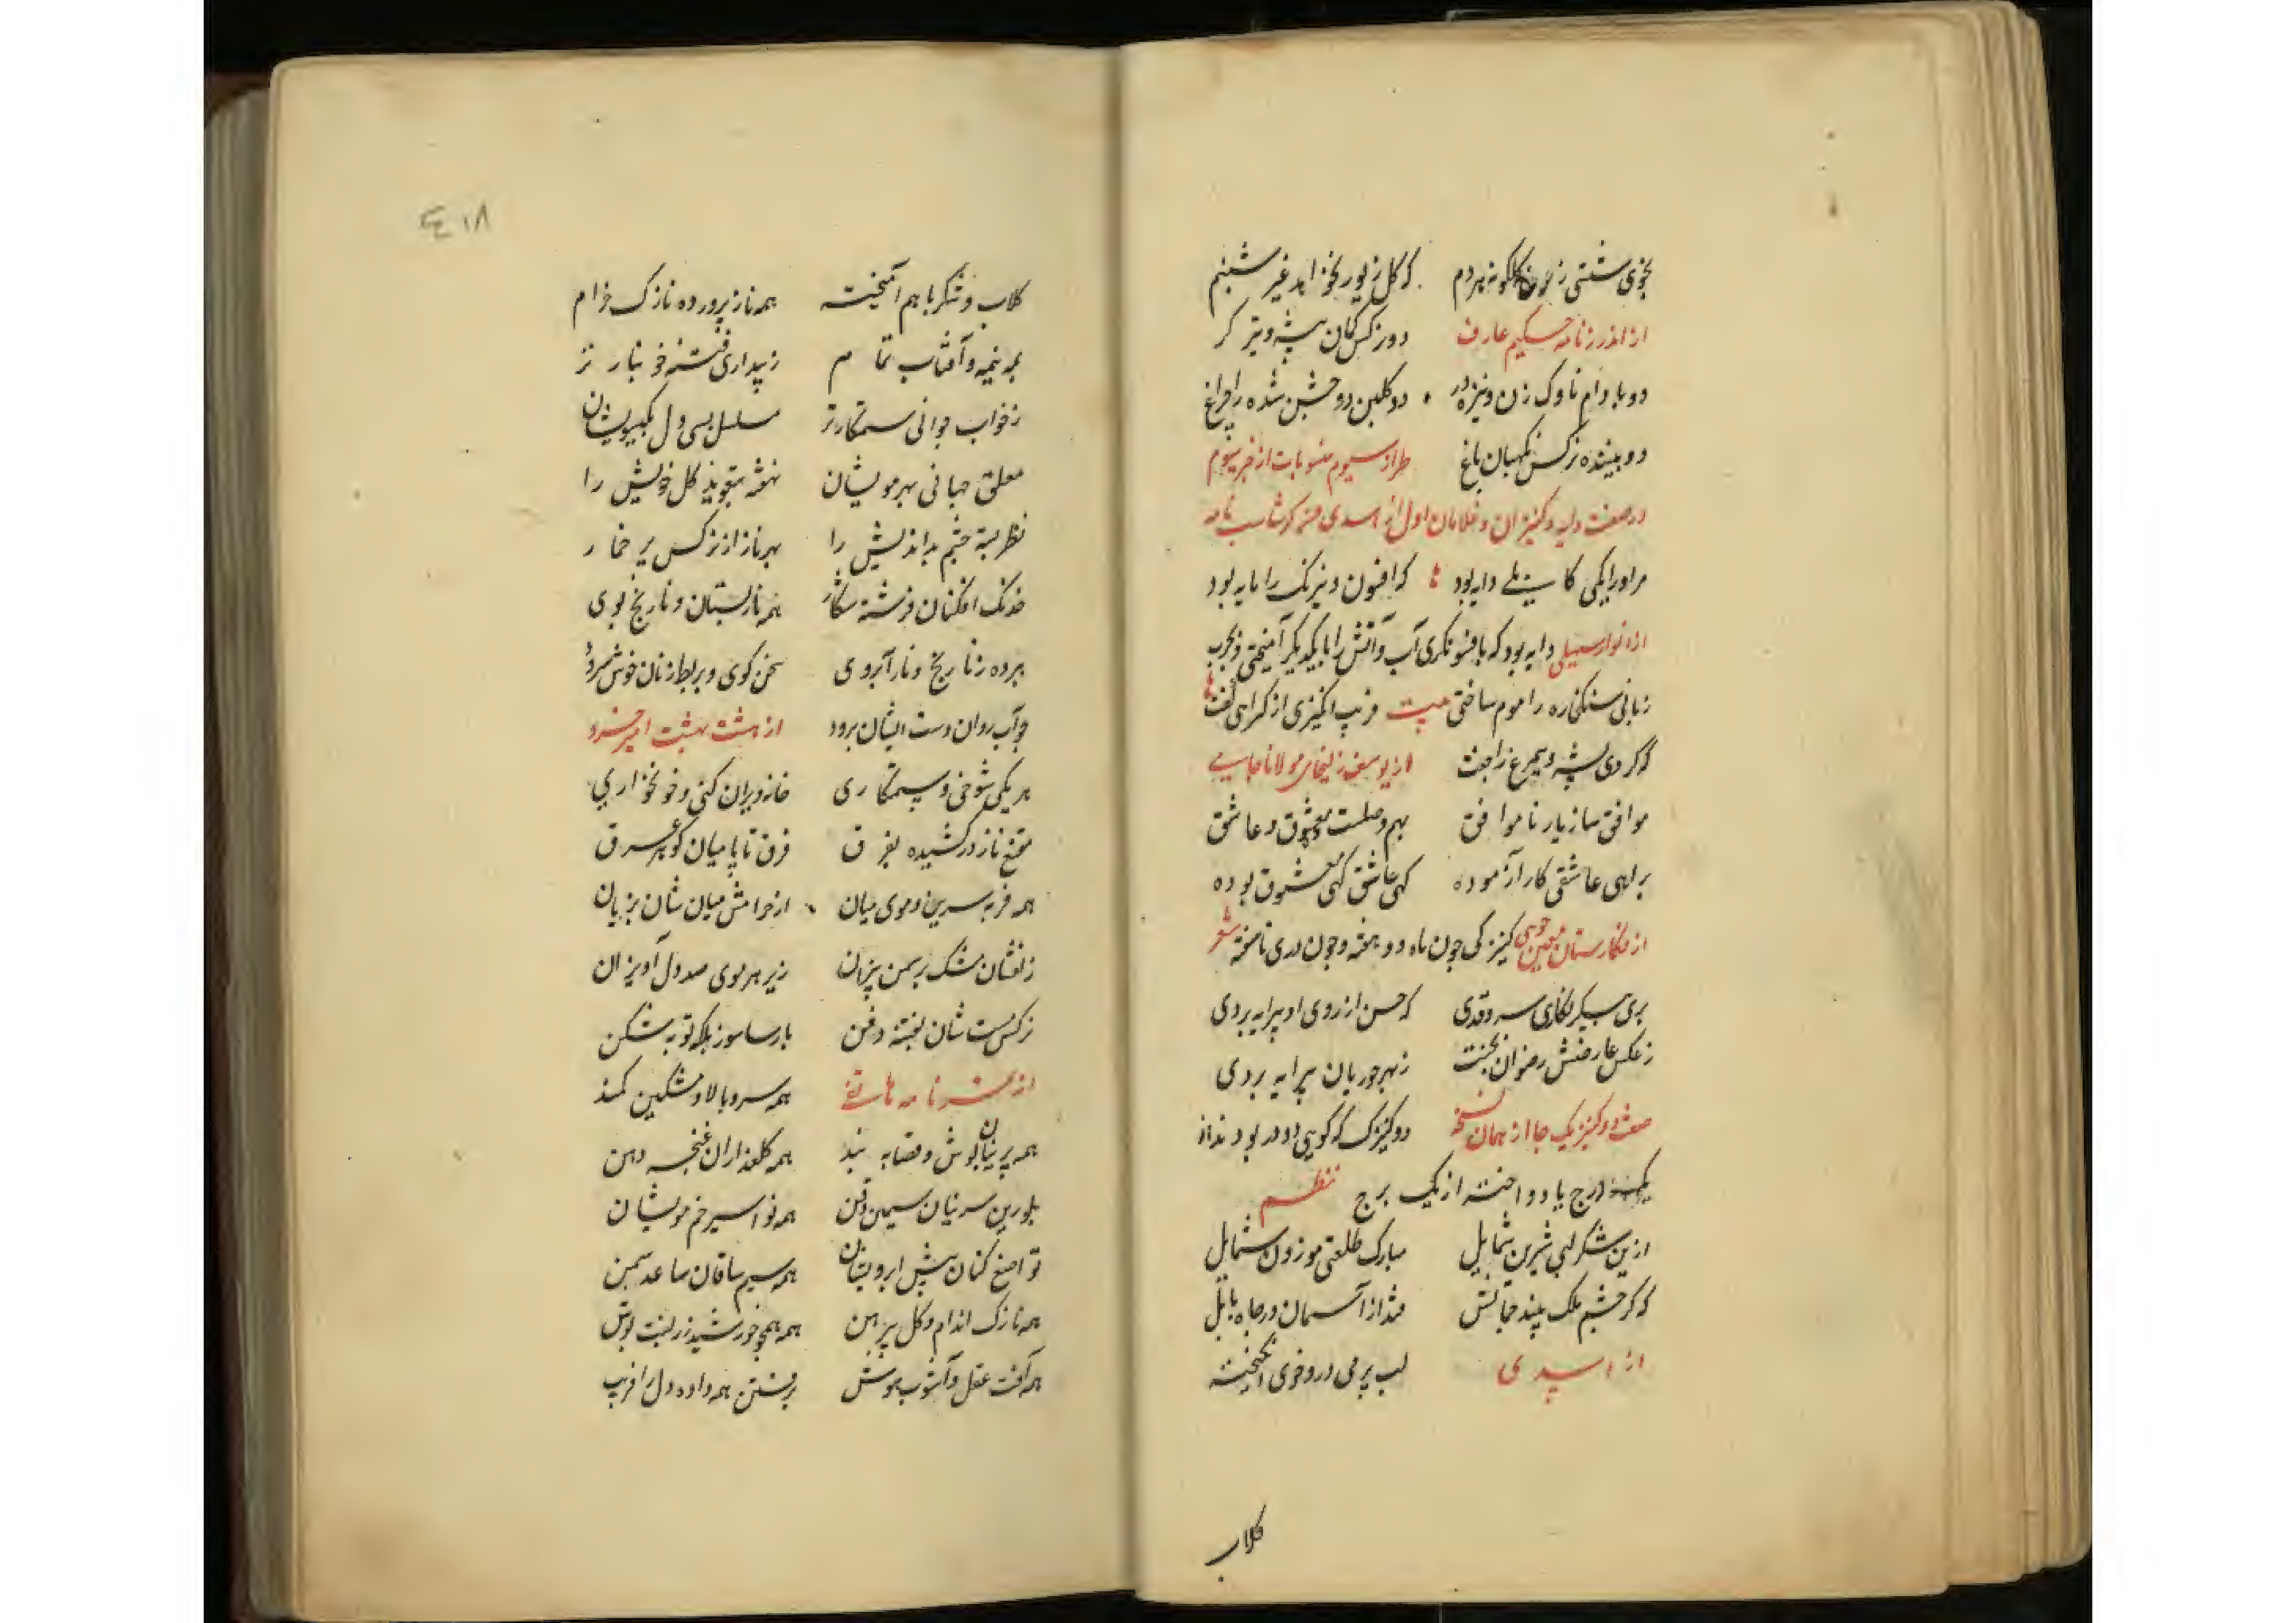 بخوی شستی ز خون گلگونه هر دم که گل زیور نخواهد غیر شبنم
از اندرزنامه حکیم عارف دو نرکس کمان پیشه و تیر کر
دو بادام ناوک زن و نیزه ور دو کلبن دو چشمن شده را چراغ
دو بیننده نرکس نکهبان باغ طراز سیوم منسوبات از خبر سیوم
در صفت دایه و کنیزان و غلامان اول از اسدی فی کرشاسب نامه
مر او را یکی کابلی دایه بود که افسون و نیرنک را مایه بود
از انوار سهیلی دایه بود که بافسونکری آب و آتش را با یکدیکر آمیختی و بچرب
زبانی سنک خاره را موم ساختی بیت فریب انکیزی از کمراهی کفت
که کردی پشه و سیمرغ را جفت از یوسف زلیخای مولانا جامی
موافق ساز یار ناموافق بهم وصلت ده معشوق و عاشق
براهی عاشقی کار آزموده کهی عاشق کهی معشوق بوده
از نکارستان معین جوینی کنیزکی چون ماه دو هفته و چون دری ناسفته شعر
پری پیکر نکاری سروقدی که حسن از روی او پیرایه بردی
ز عکس عارضش رضوان بجنت ز بهر حوریان پیرایه بردی
صفت دو کنیز یک جا از همان نسخه دو کنیزک که کویی دو در بودند از
یک درج یا دو اختر از یک برج نظم
ازین شکرلبی شیرین شمایل مبارک طلعتی موزون شمایل
که کر چشم ملک بیند جمالش فتد از آسمان در چاه بابل
از اسدی لب پر می در و خوی انکیخته
کلاب
۱۸
کلاب و شکر با هم آمیخته همه ناز پرورده نازک خرام
همه نیمه و آفتاب تمام ز بیداری فتنه خونبارتر
ز خواب جوانی ستمکارتر مسلسل بسی دل بکیسویشان
معلق جهانی بهر مویشان نهفته بتعویذ کل خویش را
نظر بسته چشم بداندیش را بهر ناز از نرکس پر خمار
خدنک افکنان فرشته شکار همه نار پستان و نارنج بوی
ببرده ز نارنج و نار آبروی سخن کوی و بربط زنان خوش سرود
چو آب روان دست ایشان برود از هشت بهشت امیر خسرو
هر یکی شوخی و ستمکاری خانه ویران کنی و خونخواری
مقنع ناز در کشیده بفرق فرق تا پا میان کوهر غرق
همه فربه سرین و موی میان از خرامش میان شان بزیان
زلفشان مشک بر سمن بیزان زیر هر موی صد دل آویزان
نرکس مست شان بفتنه و فن پارسا سوز بلکه توبه شکن
از تمرنامه هاتفی همه سرو بالا و مشکین کمند
همه پرنیان پوش و قصابه بند همه کلعذاران غنچه دهن
بلورین سرینان سیمین ذقن همه نو اسیر خم مویشان
تواضع کنان پیش ابرویشان همه سیم ساقان ساعد سمن
همه نازک اندام و کل پیرهن همه همچو خورشید زربفت پوش
همه آفت عقل و آشوب هوش برفتن همه داده دل را فریب